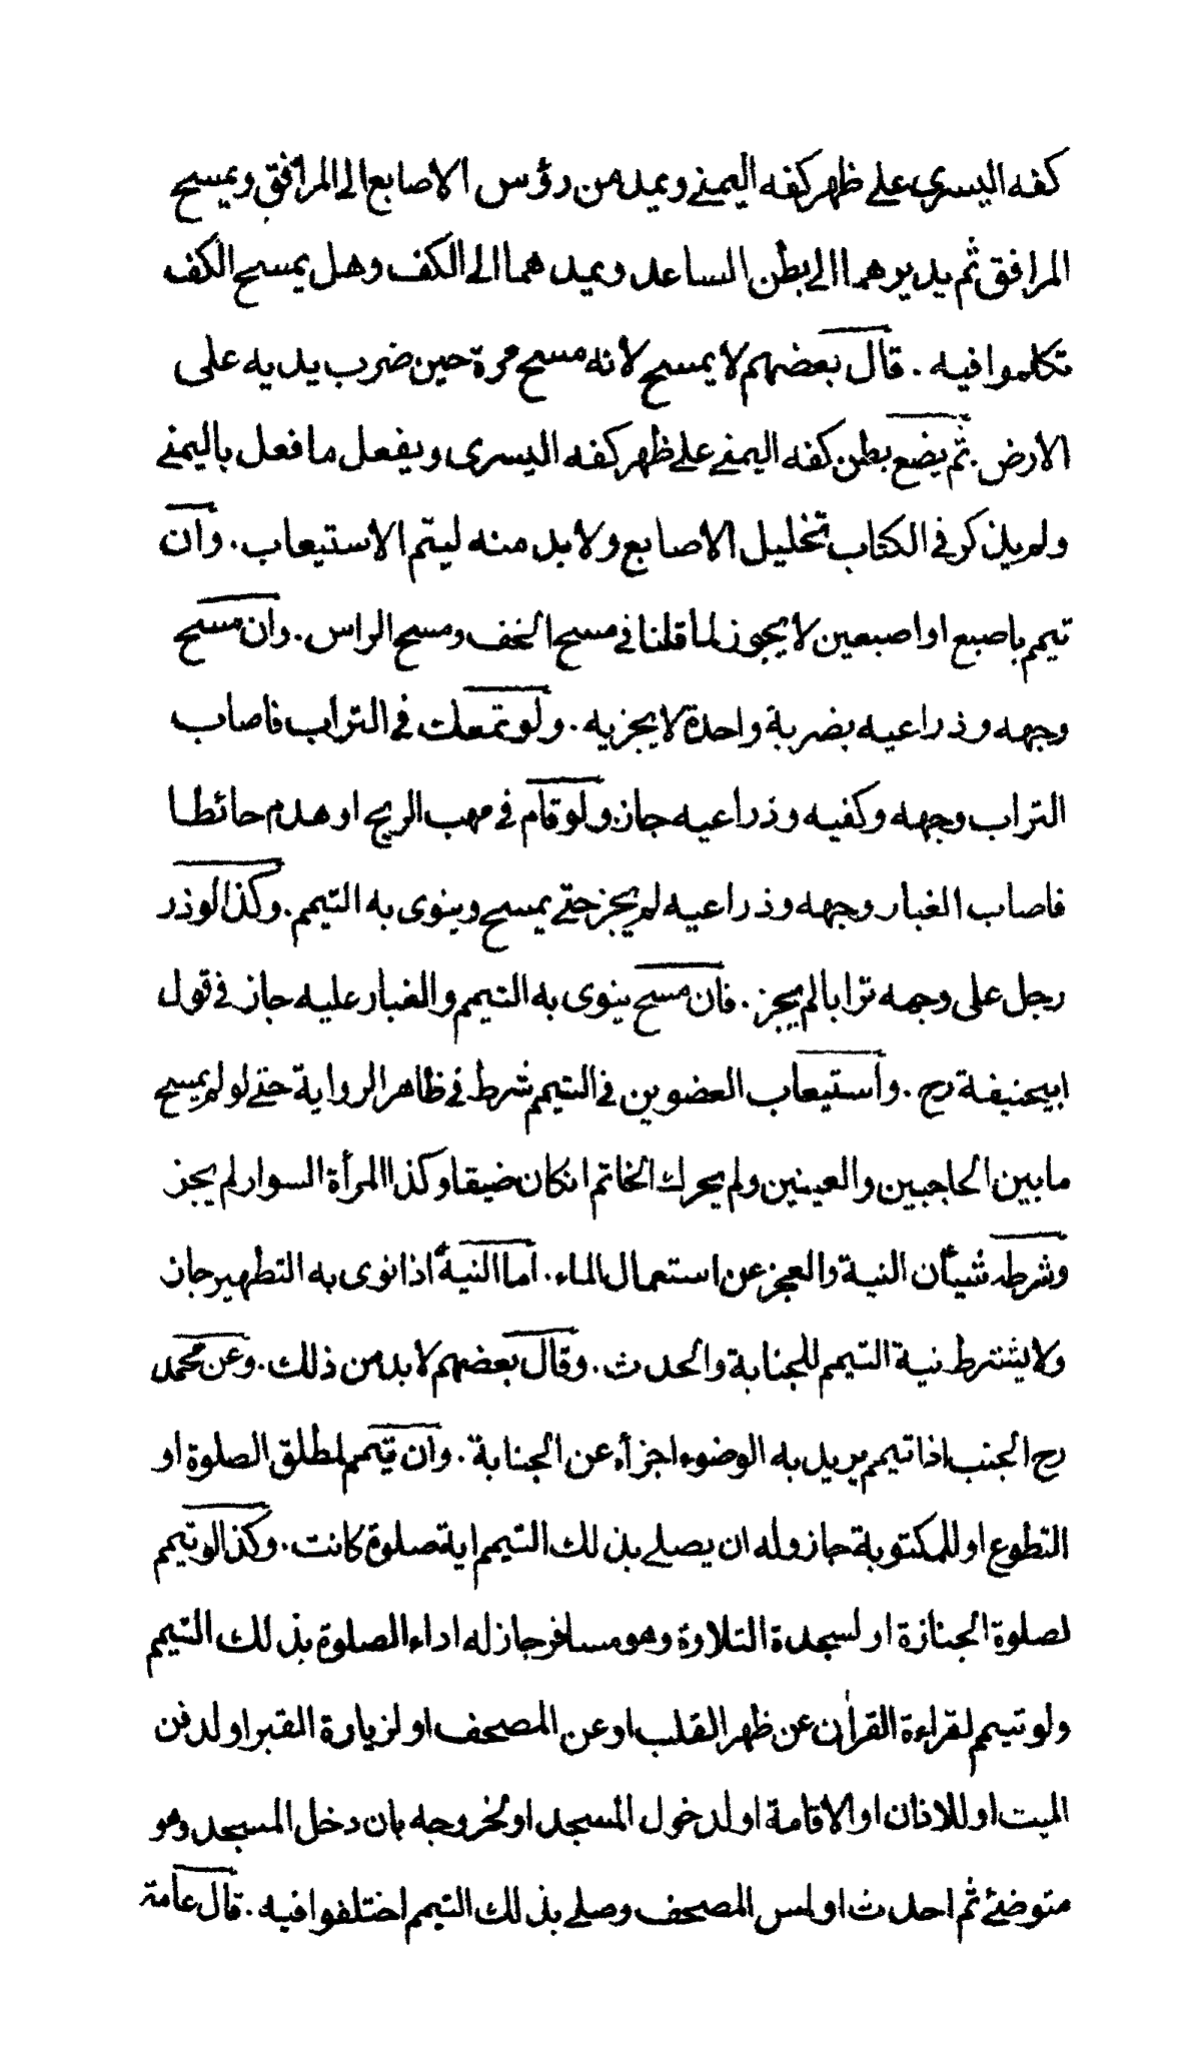 كفه اليسرى على ظهر كفه اليمنى ويمد من رؤس الاصابع الى المرافق ويمسح
المرافق ثم يديرهما الى بطن الساعد ويمدهما الى الكف وهل يمسح الكف
تكلموا فيه . قال بعضهم لا يمسح لانه مسح مرة حين ضرب يديه على
الارض . ثم يضع بطن كفه اليمنى على ظهر كفه اليسرى ويفعل ما فعل باليمنى
ولم يذكر في الكتاب تخليل الاصابع ولابد منه ليتم الاستيعاب . وان
تيمم باصبع او اصبعين لا يجوز لما قلنا في مسح الخف ومسح الراس . وان مسح
وجهه وذراعيه بضربة واحدة لا يجزيه . ولو تمعك في التراب فاصاب
التراب وجهه وكفيه وذراعيه جاز ولو قام في مهب الريح او هدم حائطا
فاصاب الغبار وجهه وذراعيه لم يجز حتى يمسح وينوى به التيمم . وكذا لو ذر
رجل على وجهه ترابا لم يجز . فان مسح ينوى به التيمم والغبار عليه جاز في قول
ابيحنيفة رح . واستيعاب العضوين في التيمم شرط في ظاهر الرواية حتى لو لم يمسح
ما بين الحاجبين والعينين ولم يحرك الخاتم انكان ضيقا وكذا المرأة السوار لم يجز
وشرطه شيأن النية والعجز عن استعمال الماء . اما النية اذا نوى به التطهير جاز
ولا يشترط نية التيمم للجنابة والحدث . وقال بعضهم لابد من ذلك . وعن محمد
رح الجنب اذا تيمم يريد به الوضوء اجزأه عن الجنابة . وان تيمم لمطلق الصلوة او
التطوع او للمكتوبة جاز وله ان يصلى بذلك التيمم اية صلوة كانت . وكذا لو تيمم
لصلوة الجنازة او لسجدة التلاوة وهو مسافر جاز له اداء الصلوة بذلك التيمم
ولو تيمم لقراءة القراٰن عن ظهر القلب او عن المصحف او لزيارة القبر او لدفن
الميت او للاذان او الاقامة او لدخول المسجد او لخروجه بان دخل المسجد وهو
متوضئ ثم احدث او لمس المصحف وصلى بذلك التيمم اختلفوا فيه . قال عامة